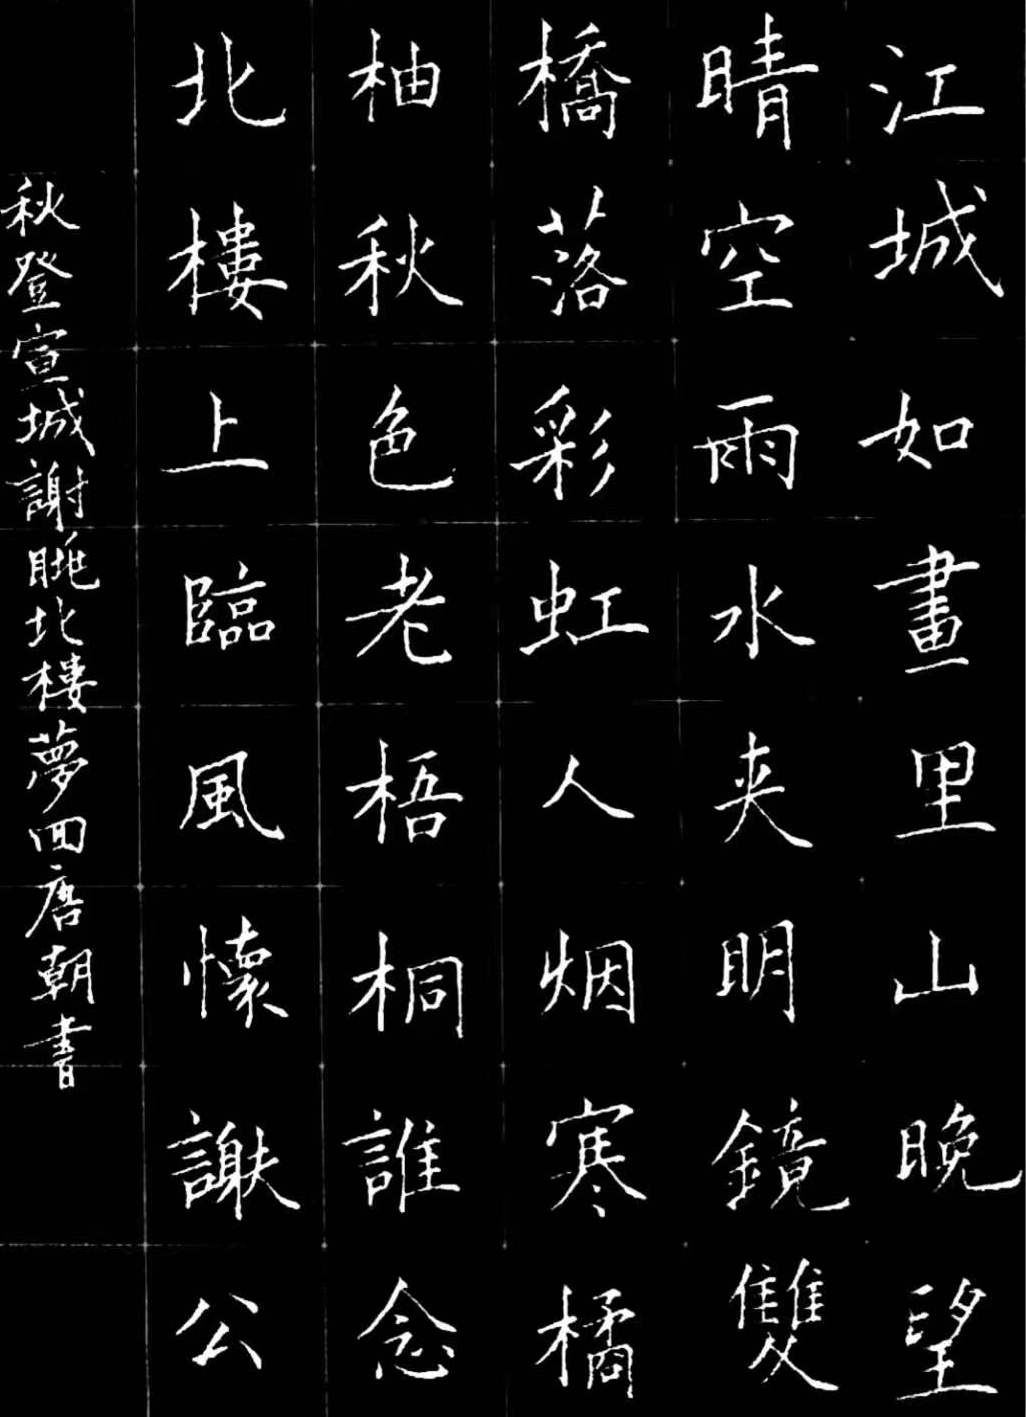 江城如畫里山晚望
晴空雨水夾明鏡雙
橋落彩虹人烟寒橘
柚秋色老梧桐誰念
北樓上臨風懷謝公
秋登宣城謝眺北樓夢回唐朝書